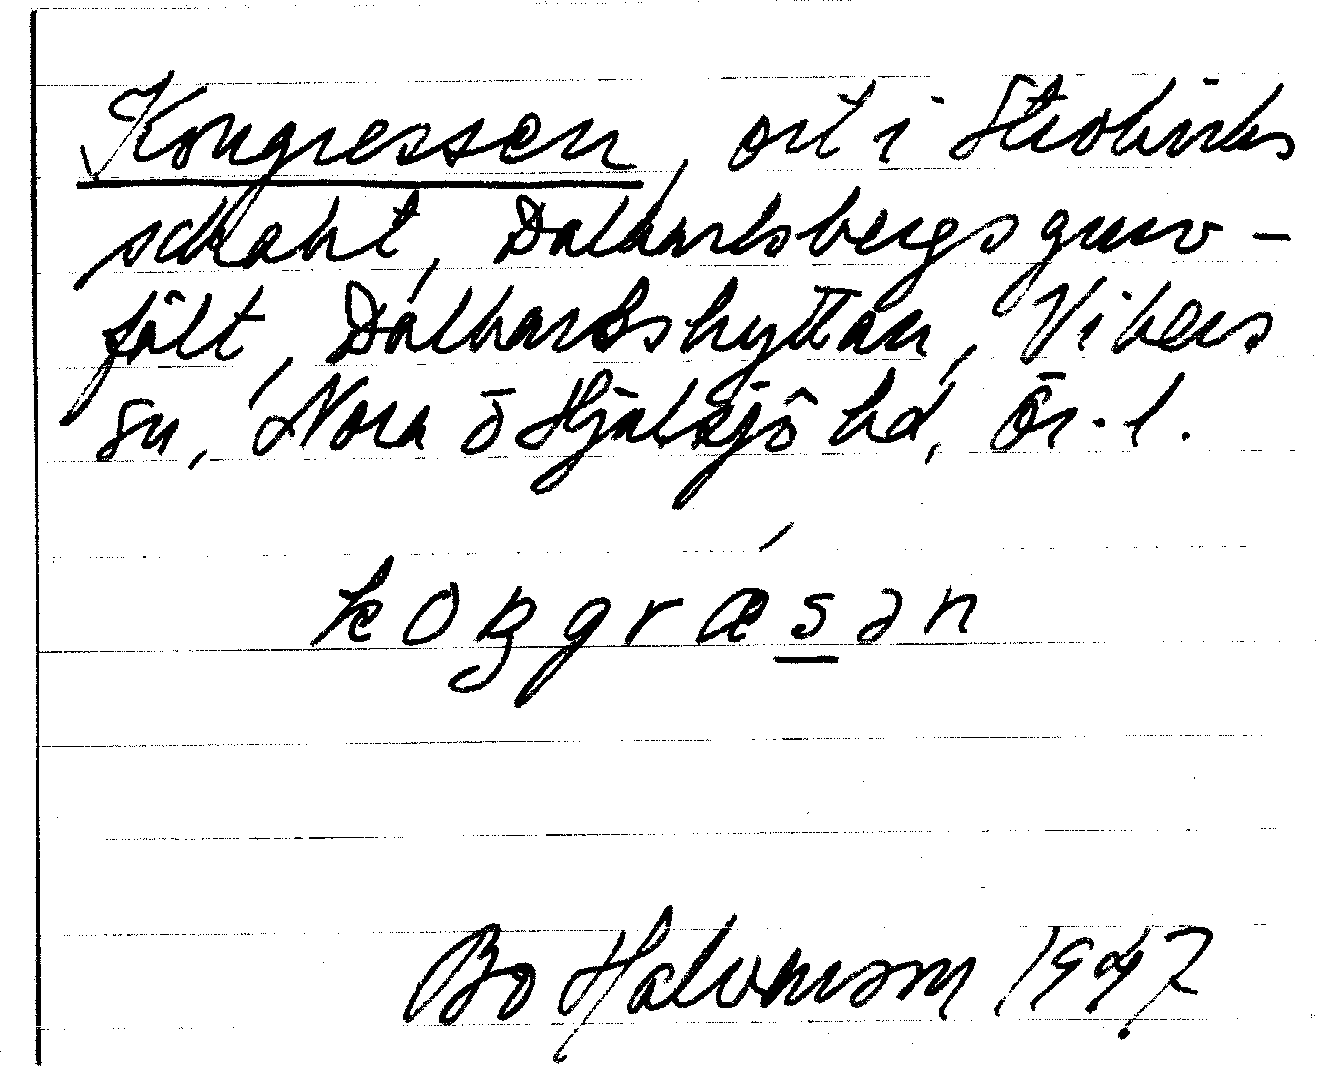 Kongressen, ort i Strokirks
schakt, Dalkarlsbergs gruv-
fält, Dalkarlshyttan, Vikers
sn, Nora o Hjulsjö hd, Ör. l.
koŋgræ´sən
Bo Halvarson 1947